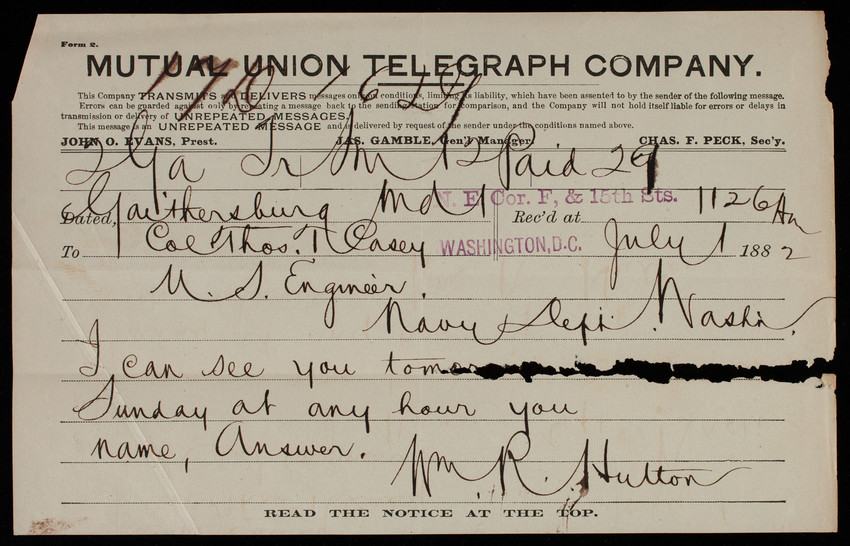 Form 2.
MUTUAL UNION TELEGRAPH COMPANY.
This Company TRANSMITS and DELIVERS messages only on conditions, limiting its liability, which have been assented to by the sender of the following message.
Errors can be guarded against only by repeating a message back to the sending station for comparison, and the Company will not hold itself liable for errors or delays in
transmission or delivery of UNREPEATED MESSAGES.
This message is an UNREPEATED MESSAGE and is delivered by request of the sender under the conditions named above.
JOHN O. EVANS, Prest. JAS. GAMBLE, Gen'l Manager CHAS. F. PECK, Sec'y.
2 Ya Jr Jm 12 Paid 29
Dated, Gaithersburg Md 1 Rec'd at N. E. Cor. F, & 15th Sts. 1126 Am
To Col Thos. T Casey WASHINGTON, D.C. July 1 1882
U. S. Engineer.
Navy Dept. Washn.
I can see you tomo
Sunday at any hour you
name, Answer.
Wm. R. Hutton
READ THE NOTICE AT THE TOP.